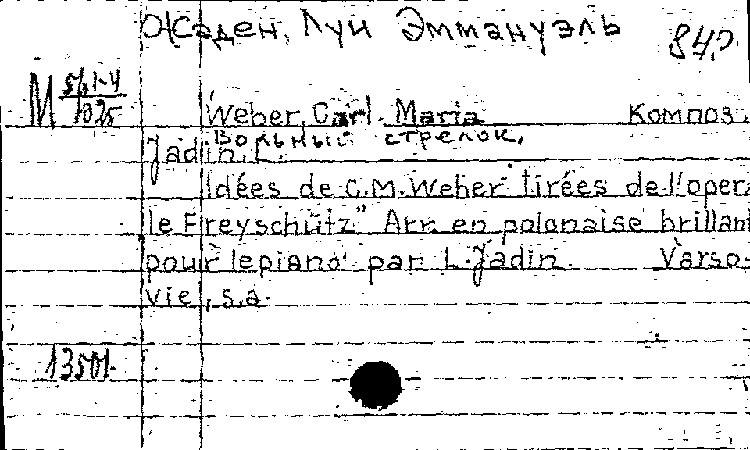 Жаден, Луи Эммануэль
Weber, Carl Maria Композ.
Вольный стрелок.
Jadin, L.
Idées de C.M. Weber tirées de l'oper.
le Freyschütz" Arr. en polonaise brillant
pour le piano par L. Jadin. Varso-
vie, s.a.